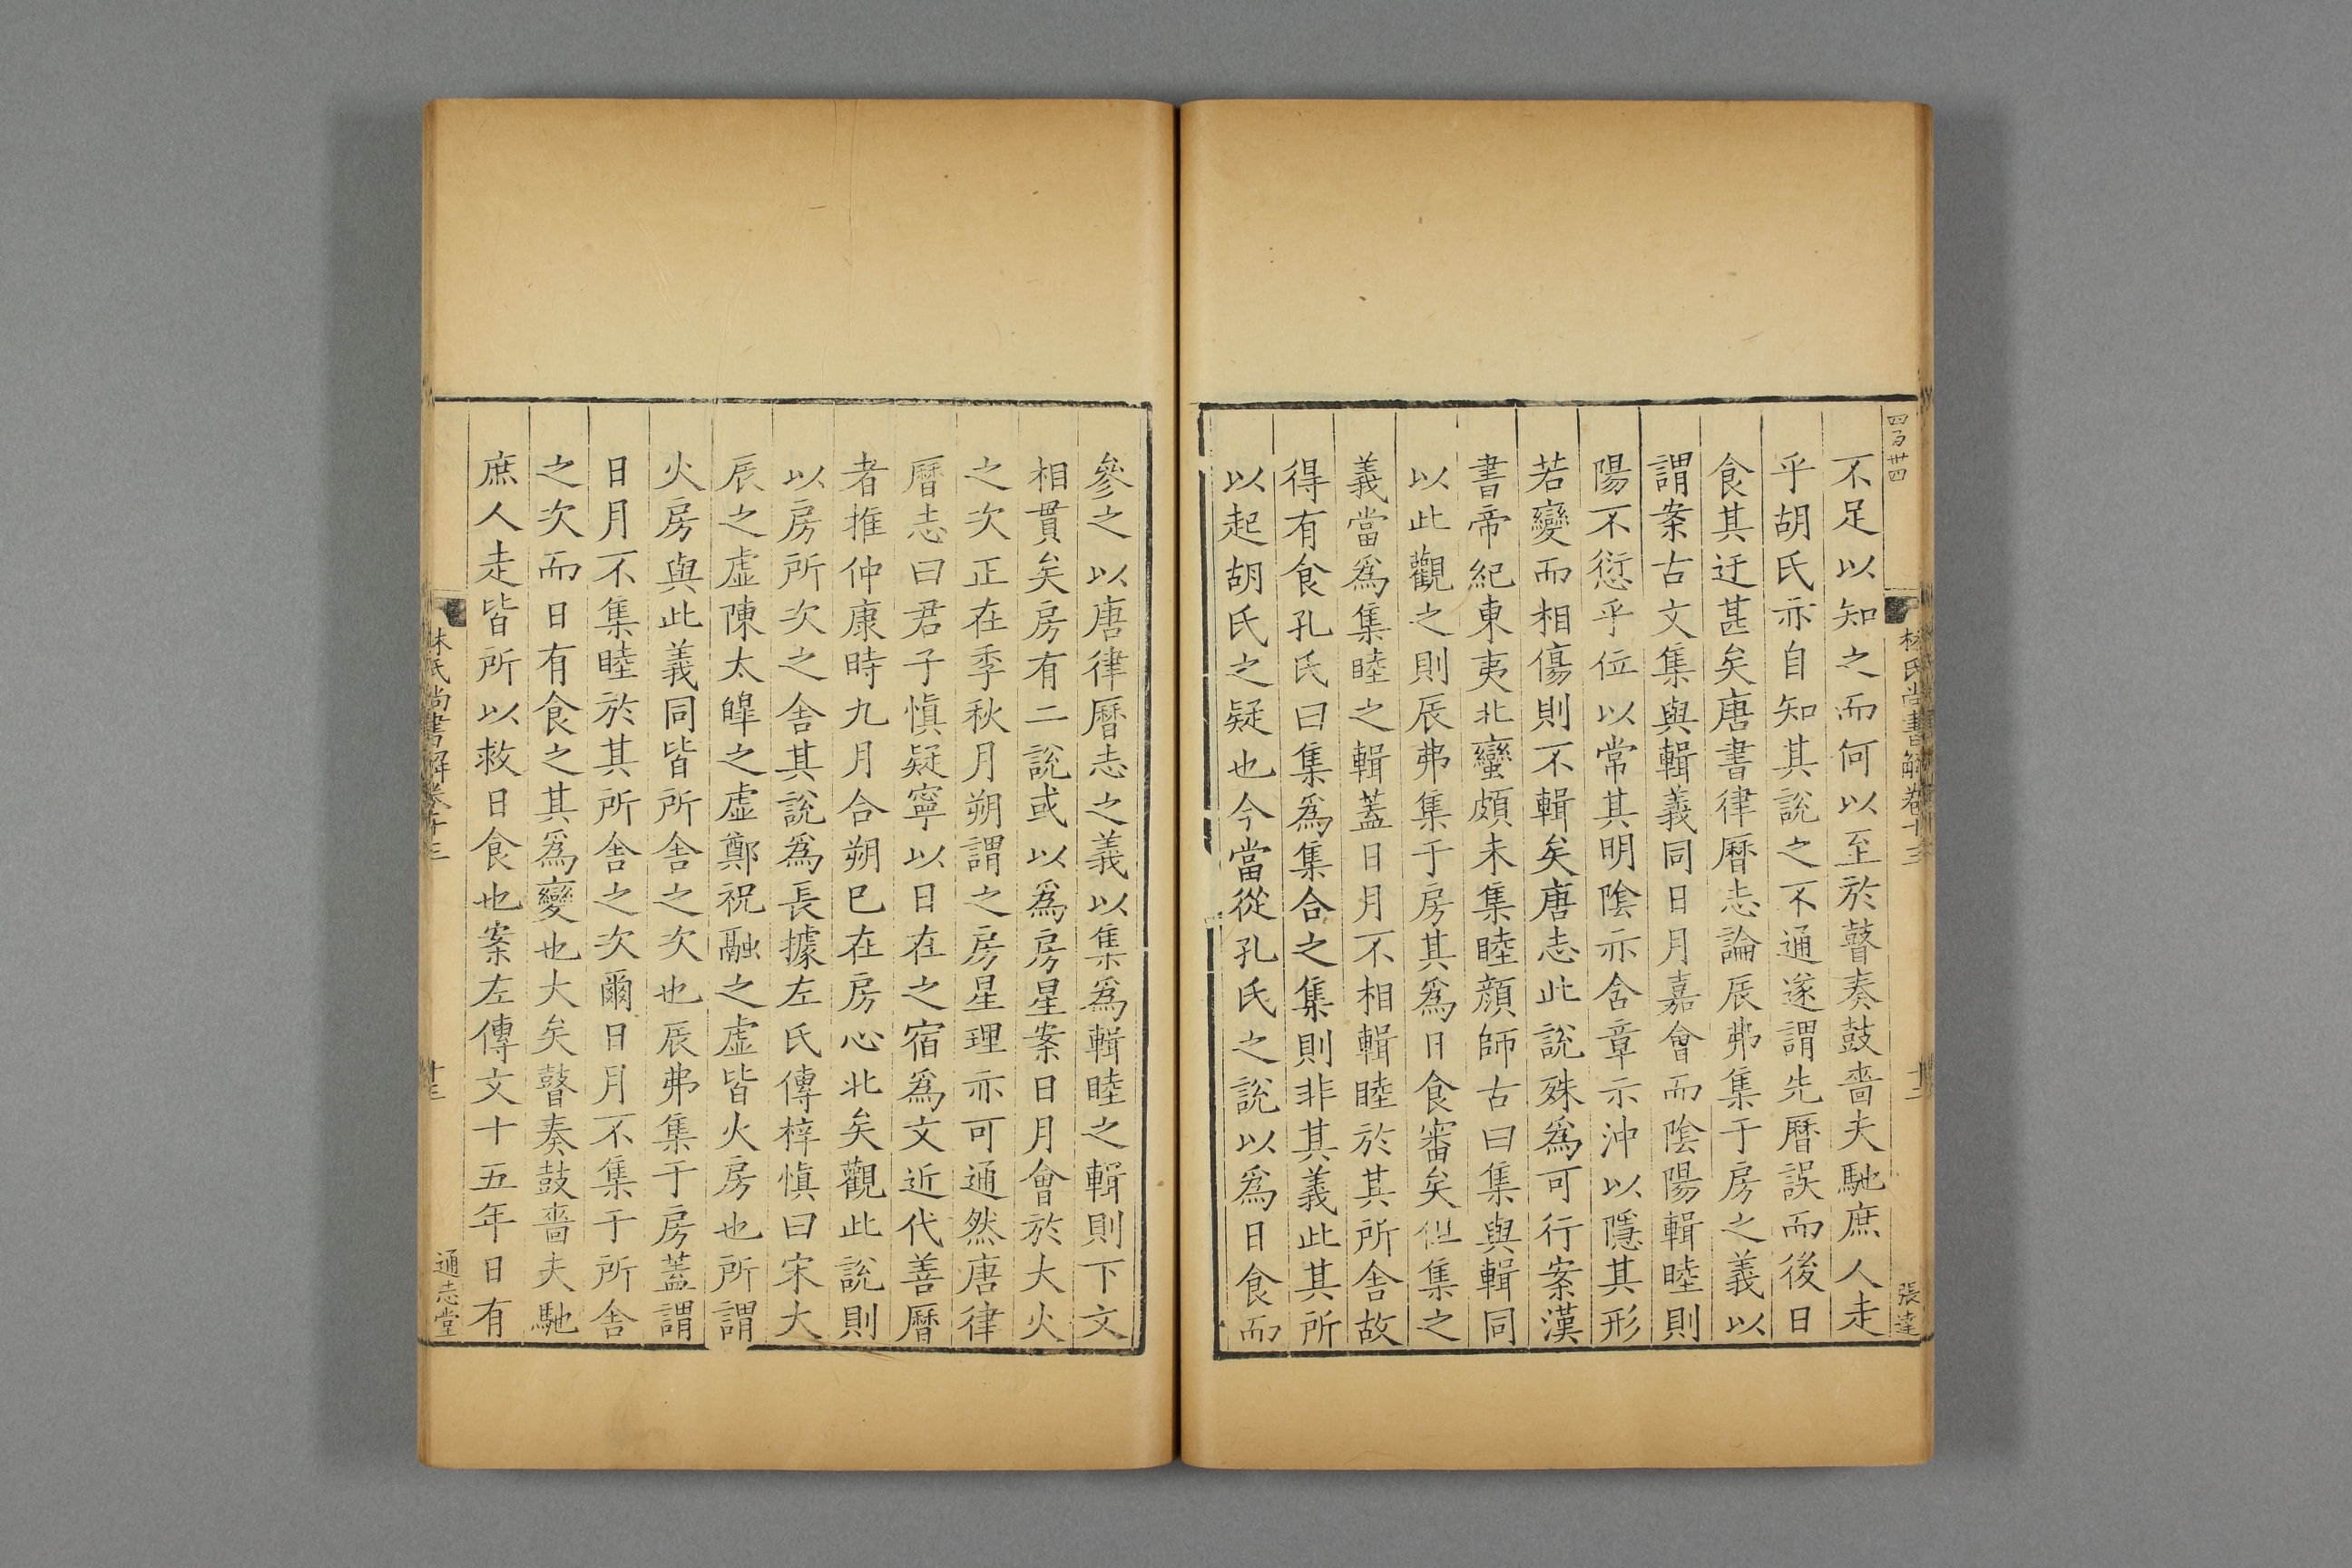 四百卅四
林氏尚書解卷十三
十二
張達
不足以知之而何以至於瞽奏鼓嗇夫馳庶人走
乎胡氏亦自知其說之不通遂謂先曆誤而後日
食其迂甚矣唐書律曆志論辰弗集于房之義以
謂案古文集與輯義同日月嘉會而陰陽輯睦則
陽不愆乎位以常其明陰亦含章示沖以隱其形
若變而相傷則不輯矣唐志此說殊爲可行案漢
書帝紀東夷北蠻頗未集睦顏師古曰集與輯同
以此觀之則辰弗集于房其爲日食審矣但集之
義當爲集睦之輯蓋日月不相輯睦於其所舍故
得有食孔氏曰集爲集合之集則非其義此其所
以起胡氏之疑也今當從孔氏之說以爲日食而
參之以唐律曆志之義以集爲輯睦之輯則下文
相貫矣房有二說或以爲房星案日月會於大火
之次正在季秋月朔謂之房星理亦可通然唐律
曆志曰君子愼疑寧以日在之宿爲文近代善曆
者推仲康時九月合朔巳在房心北矣觀此說則
以房所次之舍其說爲長據左氏傳梓愼曰宋大
辰之虛陳太皥之虛鄭祝融之虛皆火房也所謂
火房與此義同皆所舍之次也辰弗集于房蓋謂
日月不集睦於其所舍之次爾日月不集于所舍
之次而日有食之其爲變也大矣瞽奏鼓嗇夫馳
庶人走皆所以救日食也案左傳文十五年日有
林氏尚書解卷十三
十三
通志堂